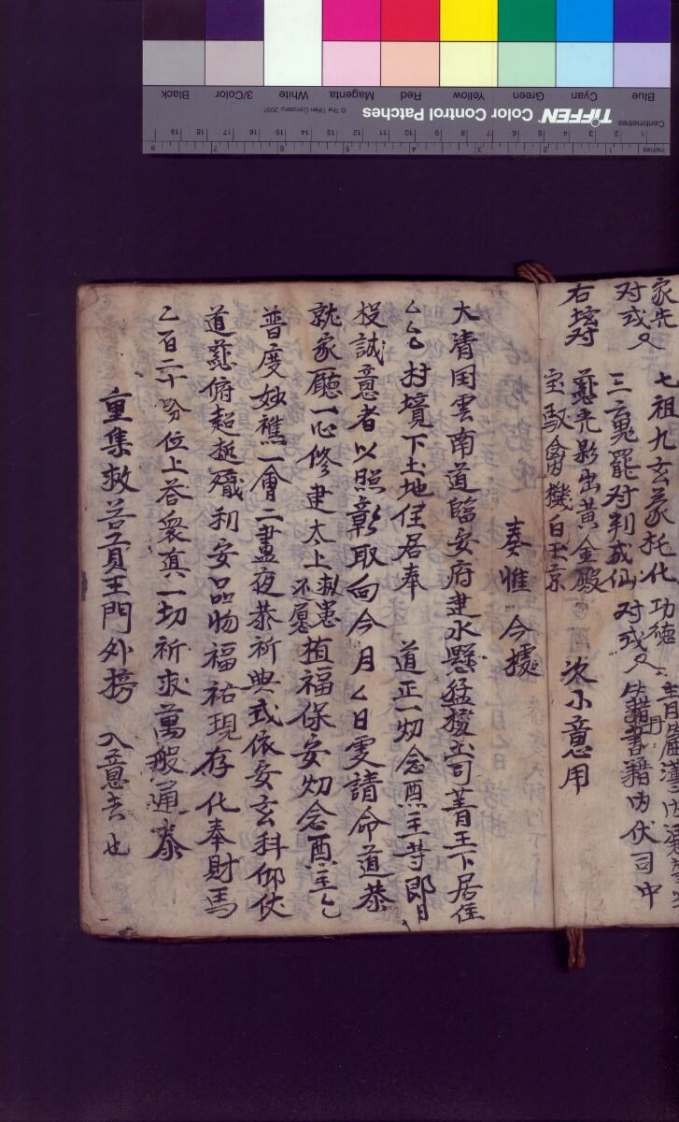 家先 七祖九玄蒙托化 功德
对或又 三玄鬼罷对判成仙 对或又 生籍書籍内伏司中
右壇对 慈光影出黃金殿 次小意用
宝馭會機白玉京
奏惟 今據
大清国雲南道臨安府建水縣猛 司菁王下居住
厶厶村境下土地住居奉 道正一炒念焄主等即日
投誠意者以照彰取向今月厶日雯請命道恭
就家廳一心修建太上救患不愿植福保安炒念焄主厶
普度妙醮一會二晝夜恭祈典式依安玄科仰伏
道慈俯超挺殲利安品物福祐現存化奉財馬
乙百二十分位上荅衆真一切祈求萬般通泰
重集救苦真王門外榜 入意去也
Blue
Cyan
Green
Yellow
Red
Magenta
White
3/Color
Black
TIFFEN Color Control Patches
© The Tiffen Company, 2007
Centimetres
Inches
1 2 3 4 5 6 7 8 9 10 11 12 13 14 15 16 17 18 19
1 2 3 4 5 6 7 8